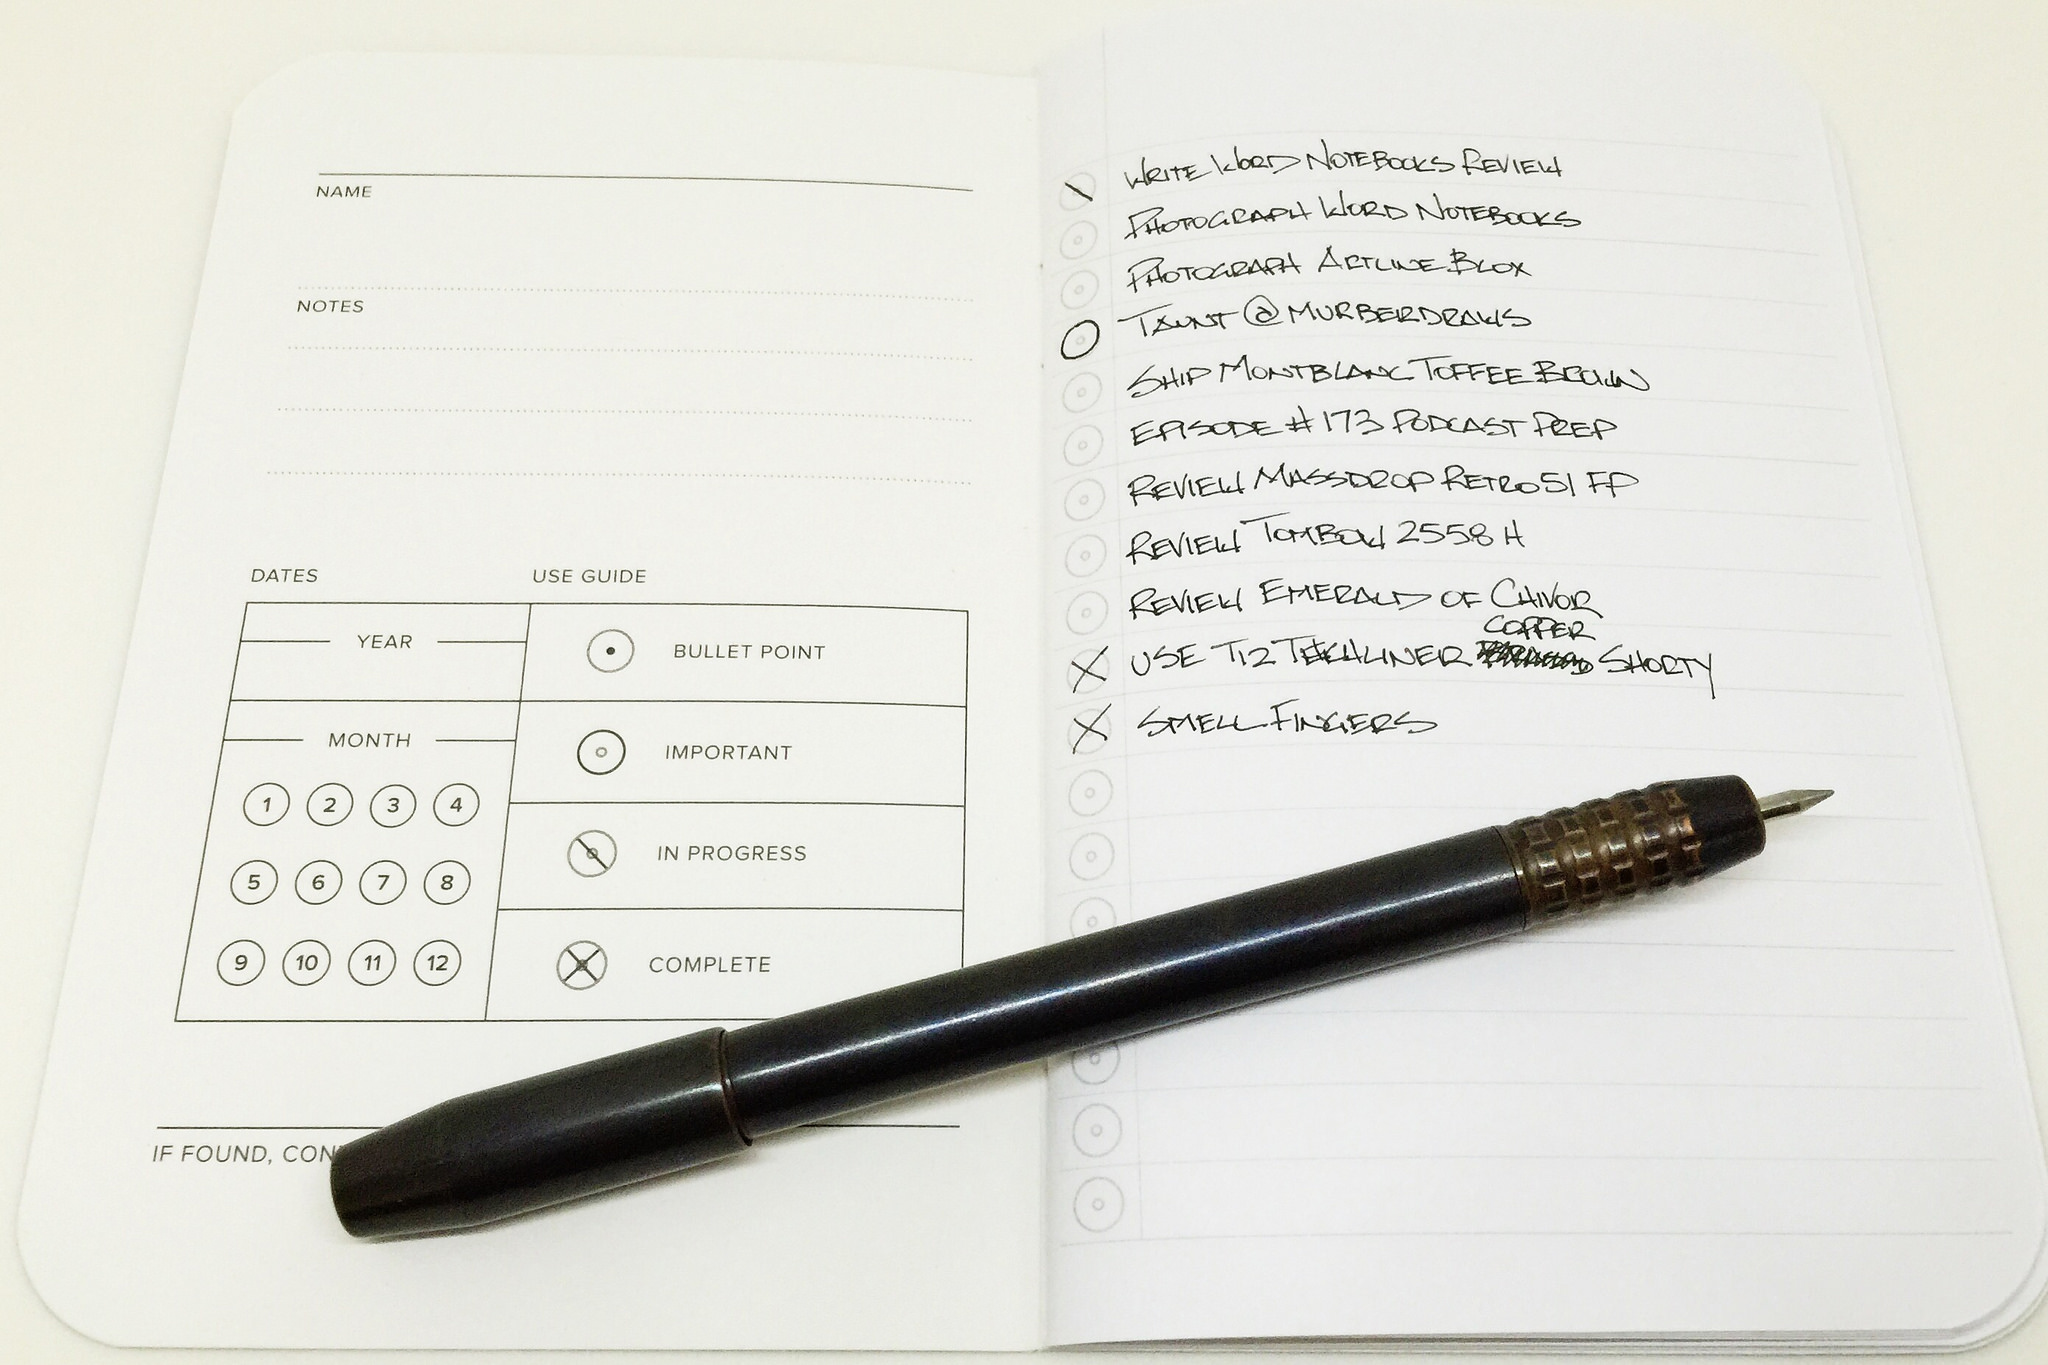 NAME
NOTES
DATES
USE GUIDE
YEAR
BULLET POINT
MONTH
IMPORTANT
1 2 3 4
IN PROGRESS
5 6 7 8
COMPLETE
9 10 11 12
IF FOUND, CON
WRITE WORD NOTEBOOKS REVIEW
PHOTOGRAPH WORD NOTEBOOKS
PHOTOGRAPH ARTLINE BLOX
TAUNT @MURBERDRAWS
SHIP MONTBLANC TOFFEE BROWN
EPISODE #173 PODCAST PREP
REVIEW MASSDROP RETRO 51 FP
REVIEW TOMBOW 2558 H
REVIEW EMERALD OF CHIVOR
COPPER
USE TI2 TECHLINER SHORTY
SMELL FINGERS